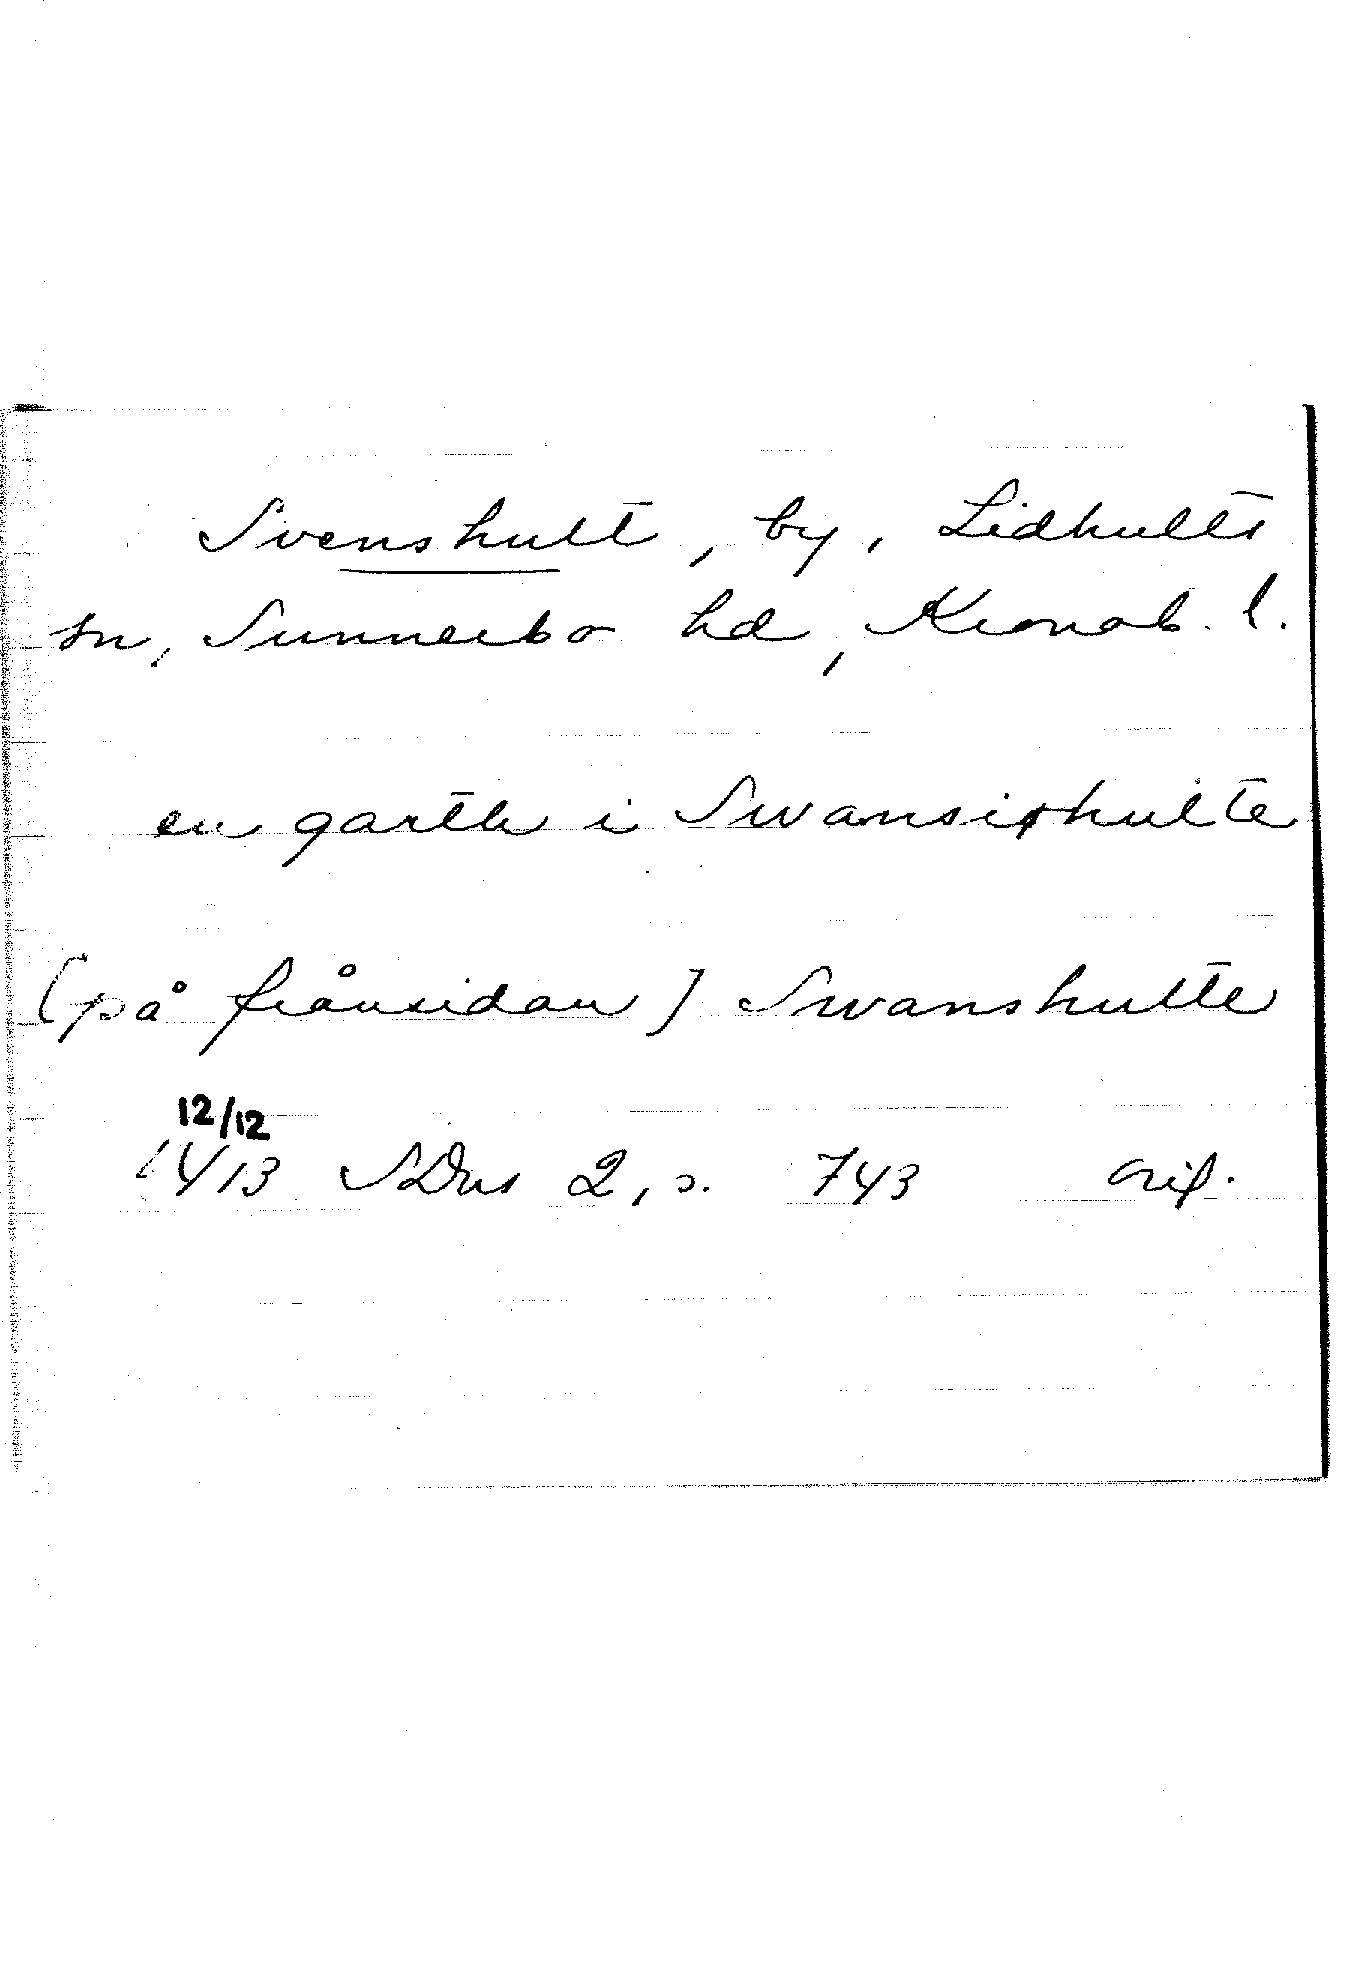 Svenshult, by, Lidhults
sn, Sunnerbo hd, Kronob. l.
en garth i Swansishulte
(på frånsidan) Swanshulte
12/12
1413 SDns 2, s. 743 orig.